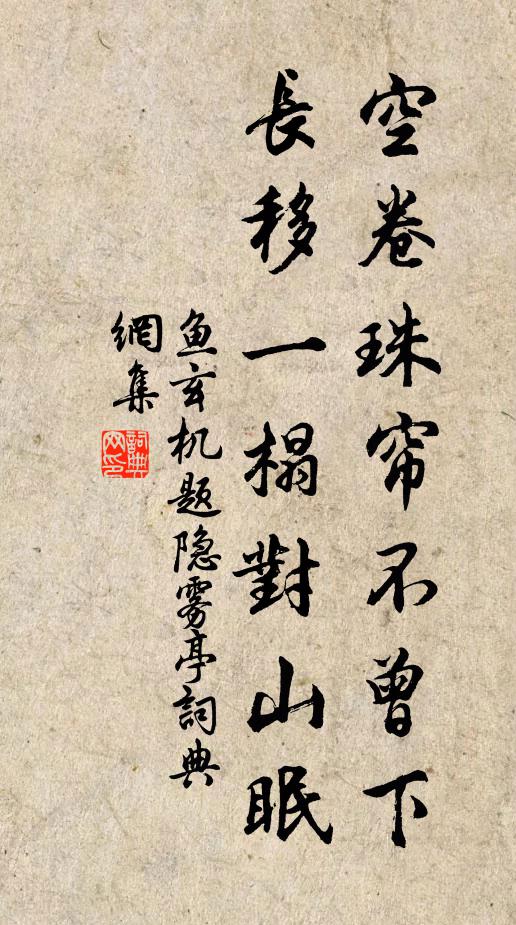 空卷珠帘不曾下
長移一榻對山眠
鱼玄机题隐雾亭詞典
網集
詞典
网印